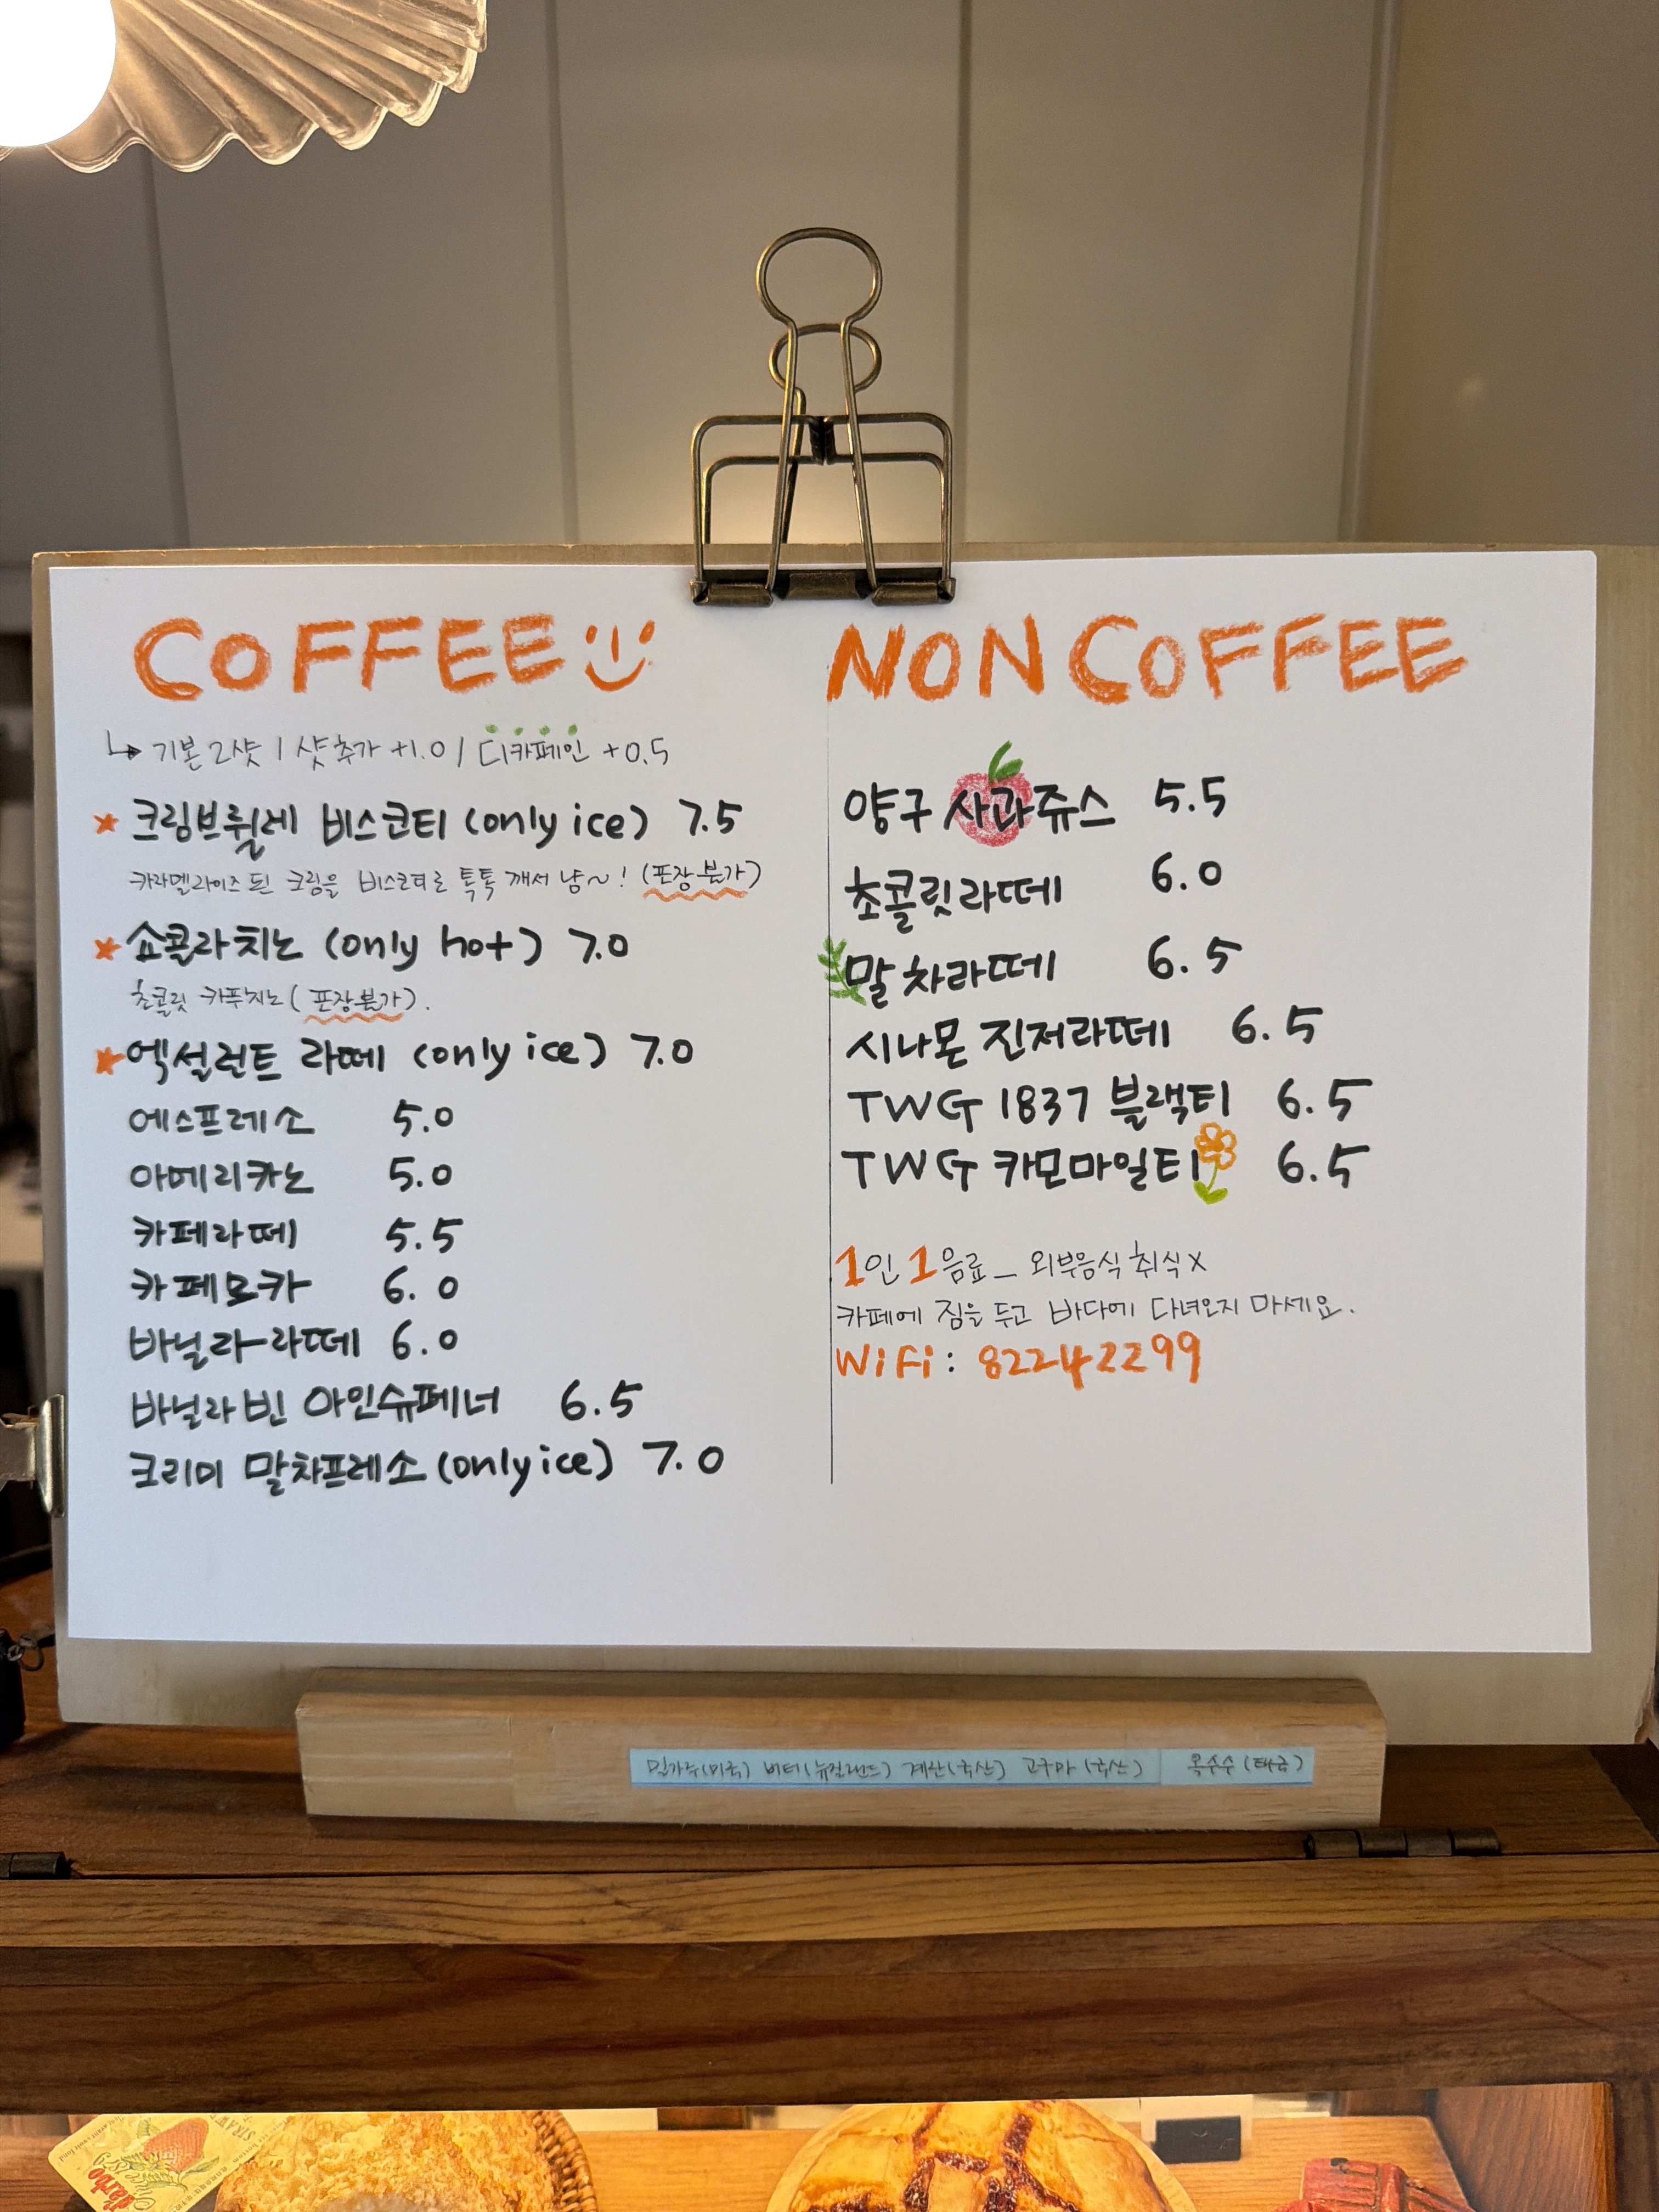 COFFEE
↳ 기본 2샷 / 샷추가 +1.0 / 디카페인 +0.5
★ 크림브륄레 비스코티 (only ice) 7.5
카라멜라이즈 된 크림을 비스코티로 톡톡 깨서 냠~! (포장불가)
★ 쇼콜라치노 (only hot) 7.0
초콜릿 카푸치노 (포장불가).
★ 엑설런트 라떼 (only ice) 7.0
에스프레소 5.0
아메리카노 5.0
카페라떼 5.5
카페모카 6.0
바닐라-라떼 6.0
바닐라빈 아인슈페너 6.5
크리미 말차프레소 (only ice) 7.0
NON COFFEE
양구 사과쥬스 5.5
초콜릿라떼 6.0
말차라떼 6.5
시나몬 진저라떼 6.5
TWG 1837 블랙티 6.5
TWG 카모마일티 6.5
1인 1음료_ 외부음식 취식 X
카페에 짐을 두고 바다에 다녀오지 마세요.
WiFi : 82242299
밀가루(미국) 버터(뉴질랜드) 계란(국산) 고구마(국산) 옥수수(태국)
darbo